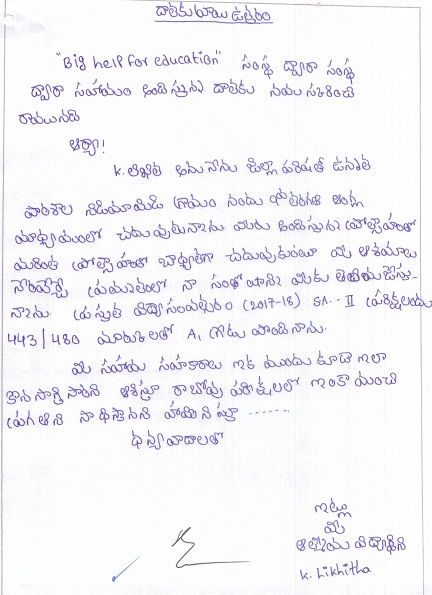 దాతకు రాయు ఉత్తరం
"Big help for education" సంస్థ ద్వారా సంస్థ
ద్వారా సహాయం అందిస్తున్న దాతకు నమస్కరించి
రాయునది
ఆర్యా!
K. లిఖిత అను నేను జిల్లా పరిషత్ ఉన్నత
పాఠశాల నిడిమామిడి గ్రామం నందు తరగతి ఆంగ్ల
మాధ్యమంలో చదువుతున్నాను మీరు అందిస్తున్న ప్రోత్సాహంతో
మరింత ప్రోత్సాహంతో బాధ్యతగా చదువుకుంటూ మీ ఆశయాలు
నెరవేర్చే ప్రయత్నంలో నా సంతోషాన్ని మీకు తెలియజేస్తు-
న్నాను ప్రస్తుత విద్యాసంవత్సరం (2017-18) SA-II పరీక్షలయందు
443/480 మార్కులతో A1 గ్రేడు పొందినాను.
మీ సహాయ సహకారాలు ఇక ముందు కూడా ఇలా
కొనసాగిస్తారని ఆశిస్తూ రాబోవు పరీక్షలలో ఇంకా మంచి
ప్రగతిని సాధిస్తానని హామీనిస్తూ .......
ధన్యవాదాలతో
ఇట్లు
మీ
ఆత్మీయ విద్యార్థిని
K. Likhitha